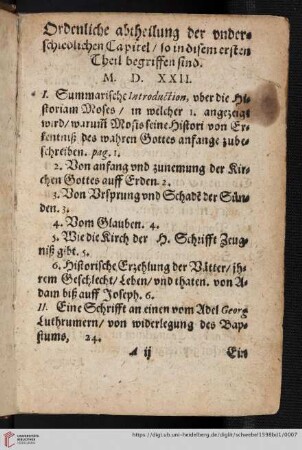 Ordenliche abtheilung der vnder-
schiedlichen Capitel / so in disem ersten
Theil begriffen sind.
M. D. XXII.
I. Summarische Introduction, vber die Hi-
storiam Moses / in welcher 1. angezeigt
wird / warum̃ Mosis seine Histori von Er-
kentniß des wahren Gottes anfange zube-
schreiben. pag. 1.
2. Von anfang vnd zunemung der Kir-
chen Gottes auff Erden. 2.
3. Von Vrsprung vnd Schadẽ der Sün-
den. 3.
4. Vom Glauben. 4.
5. Wie die Kirch der H. Schrifft Zeug-
niß gibt. 5.
6. Historische Erzehlung der Vätter / ih-
rem Geschlecht / Leben / vnd thaten. von A-
dam biß auff Joseph. 6.
II. Eine Schrifft an einen vom Adel Georg
Luthrumern / von widerlegung des Bap-
stums. 24.
A ij Ein
https://digi.ub.uni-heidelberg.de/diglit/scherbel1598bd1/0007
UNIVERSITÄTS-
BIBLIOTHEK
HEIDELBERG